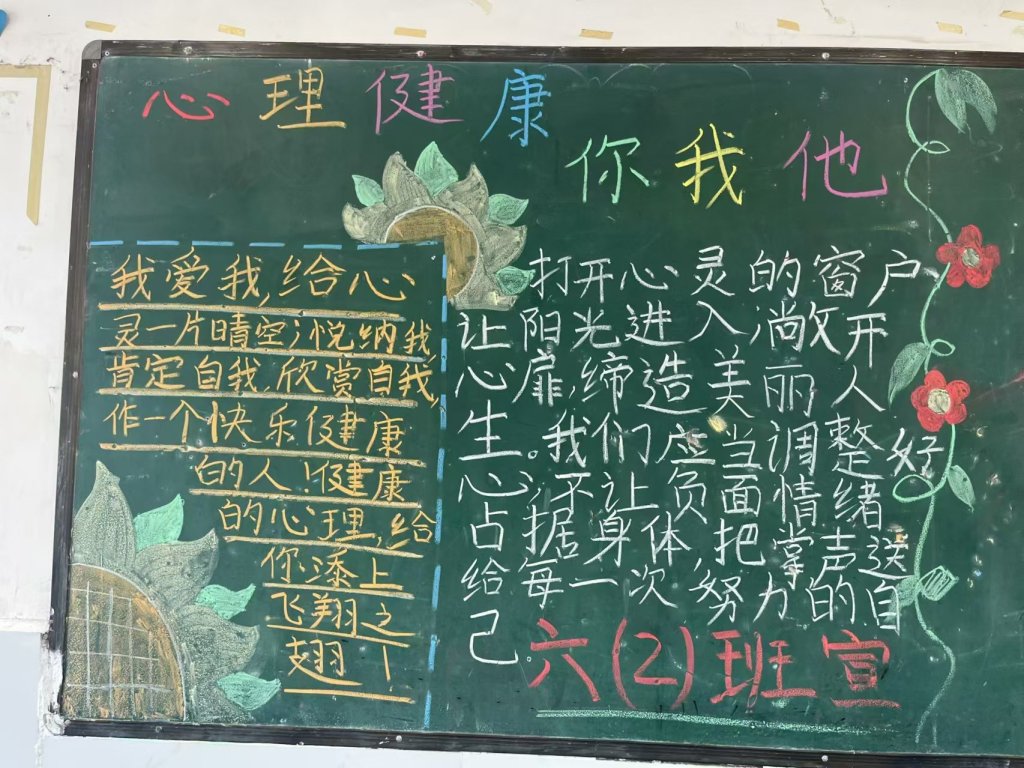 心理健康
你我他
我爱我,给心
灵一片晴空;悦纳我
肯定自我,欣赏自我,
作一个快乐健康
的人!健康
的心理,给
你添上
飞翔之
翅!
打开心灵的窗户
让阳光进入,敞开
心扉,缔造美丽人
生。我们应当调整好
心,不让负面情绪
占据身体,把掌声送
给每一次努力的自
己。
六(2)班宣